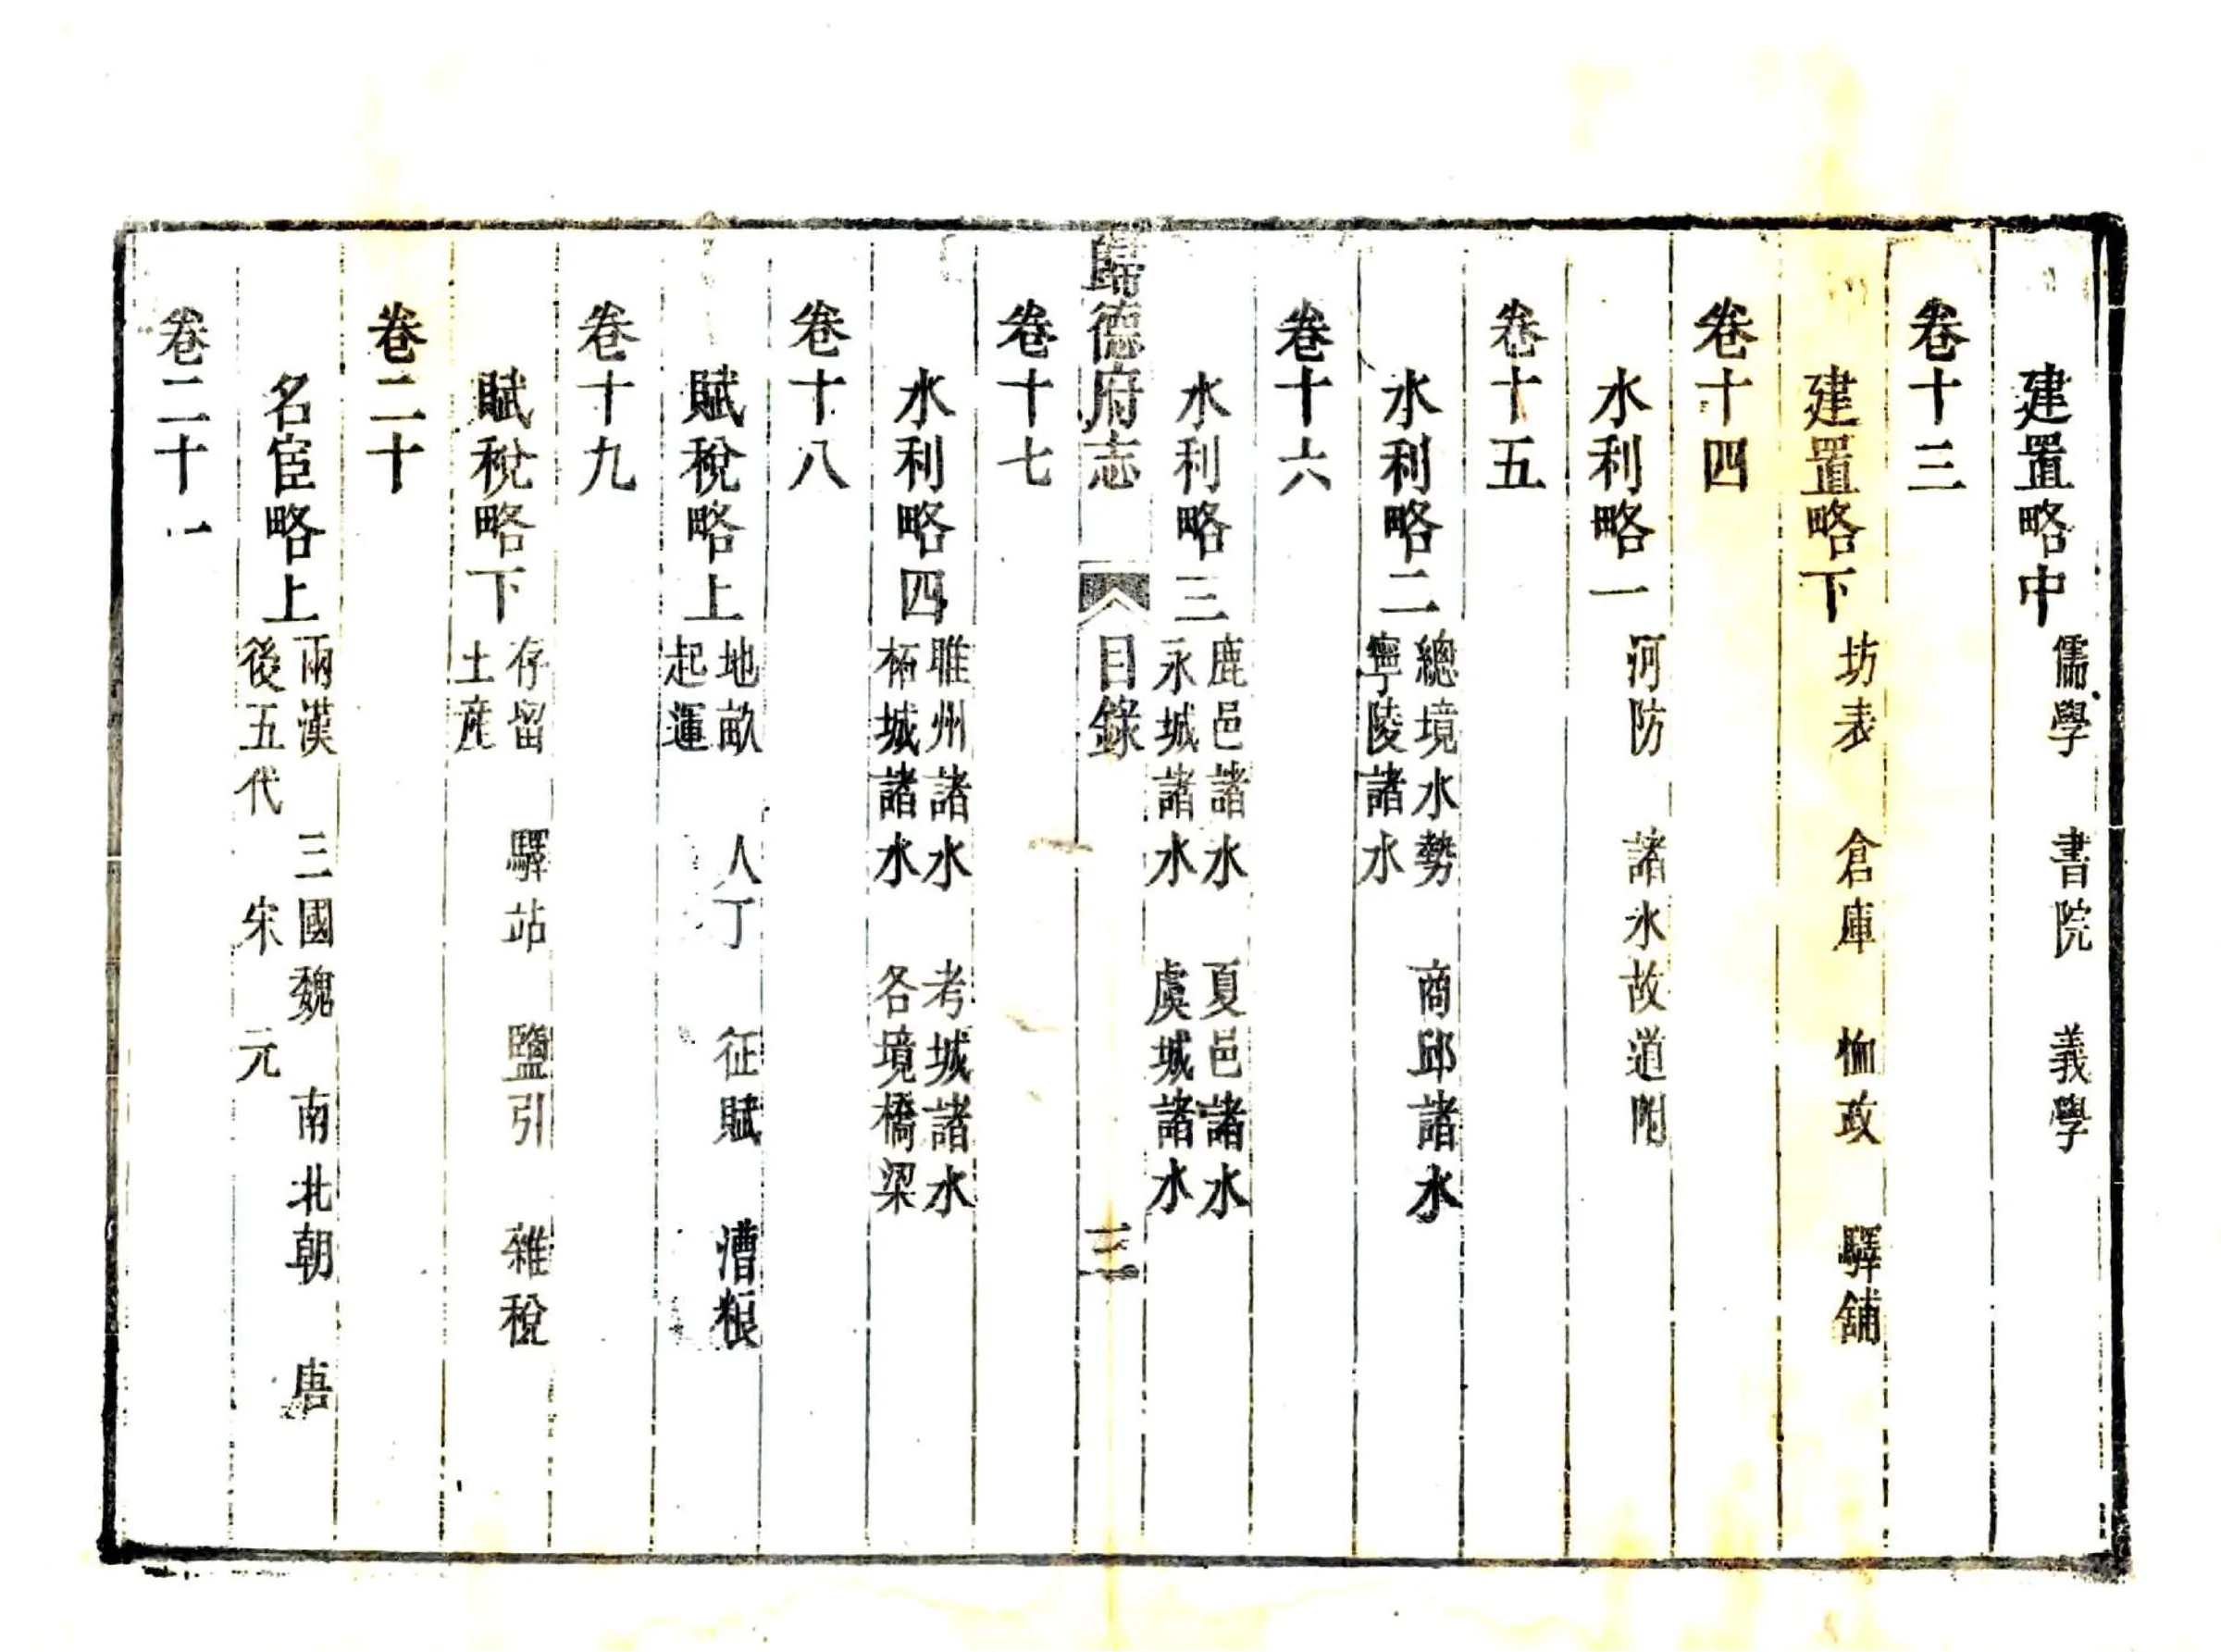 建置略中 儒學 書院 義學
卷十三
建置略下 坊表 倉庫 恤政 驛舖
卷十四
水利略一 河防 諸水故道附
卷十五
水利略二 總境水勢 商邱諸水
寧陵諸水
卷十六
水利略三 鹿邑諸水 夏邑諸水
永城諸水 虞城諸水
歸德府志 目錄 三
卷十七
水利略四 睢州諸水 考城諸水
柘城諸水 各境橋梁
卷十八
賦稅略上 地畝 人丁 征賦 漕糧
起運
卷十九
賦稅略下 存留 驛站 鹽引 雜稅
土產
卷二十
名宦略上 兩漢 三國魏 南北朝 唐
後五代 宋 元
卷二十一